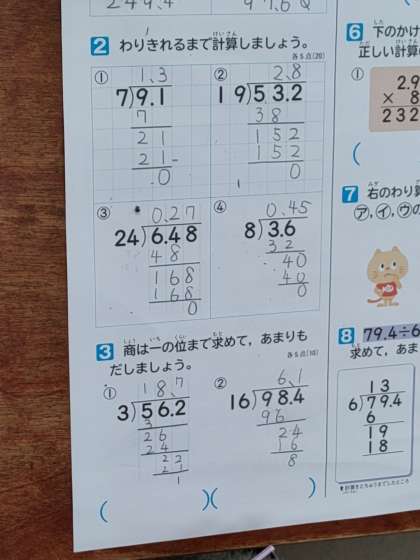 249.4
97.6
2 わりきれるまで計算しましょう。
各5点(20)
① 1.3
7)9.1
7
21
21
0
② 2.8
19)53.2
38
152
152
0
③ 0.27
24)6.48
48
168
168
0
④ 0.45
8)3.6
32
40
40
0
3 商は一の位まで求めて，あまりも
だしましょう。
各5点(10)
① 18.7
3)56.2
3
26
24
22
21
1
② 6.1
16)98.4
96
24
16
8
( )( )
6 下のかけ
正しい計算
① 2.9
× 8
232
(
7 右のわり算
㋐，㋑，㋒の
8 79.4÷6
求めて，あま
13
6)79.4
6
19
18
↑計算をとちゅうまでしたところ